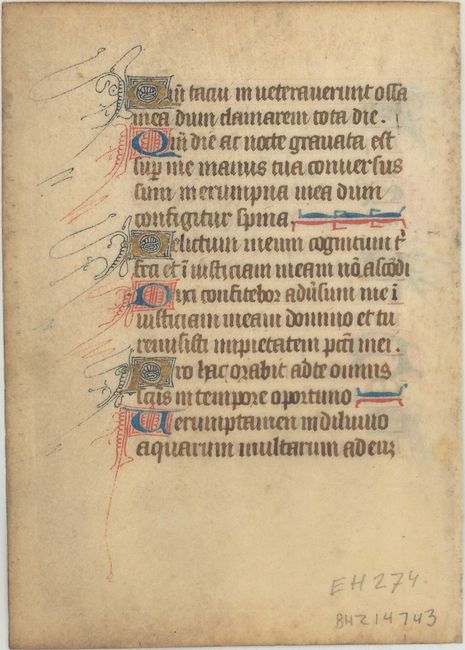 Qm̄ tacui inveteraverunt ossa
mea dum clamarem tota die.
Qm̄ die ac nocte gravata est
sup me manus tua conversus
sum in erumpna mea dum
configitur spina
Delictum meum cognitum t̄
feci et ī iusticiam meam nō ascōdi
Dixi confitebor adūsum me ī
iusticiam meam domino et tu
remisisti impietatem pcti mei.
Pro hac orabit ad te omnis
scūs in tempore oportuno
Verumptamen in diluvio
aquarum multarum ad euʒ
EH 274.
BHZ14743